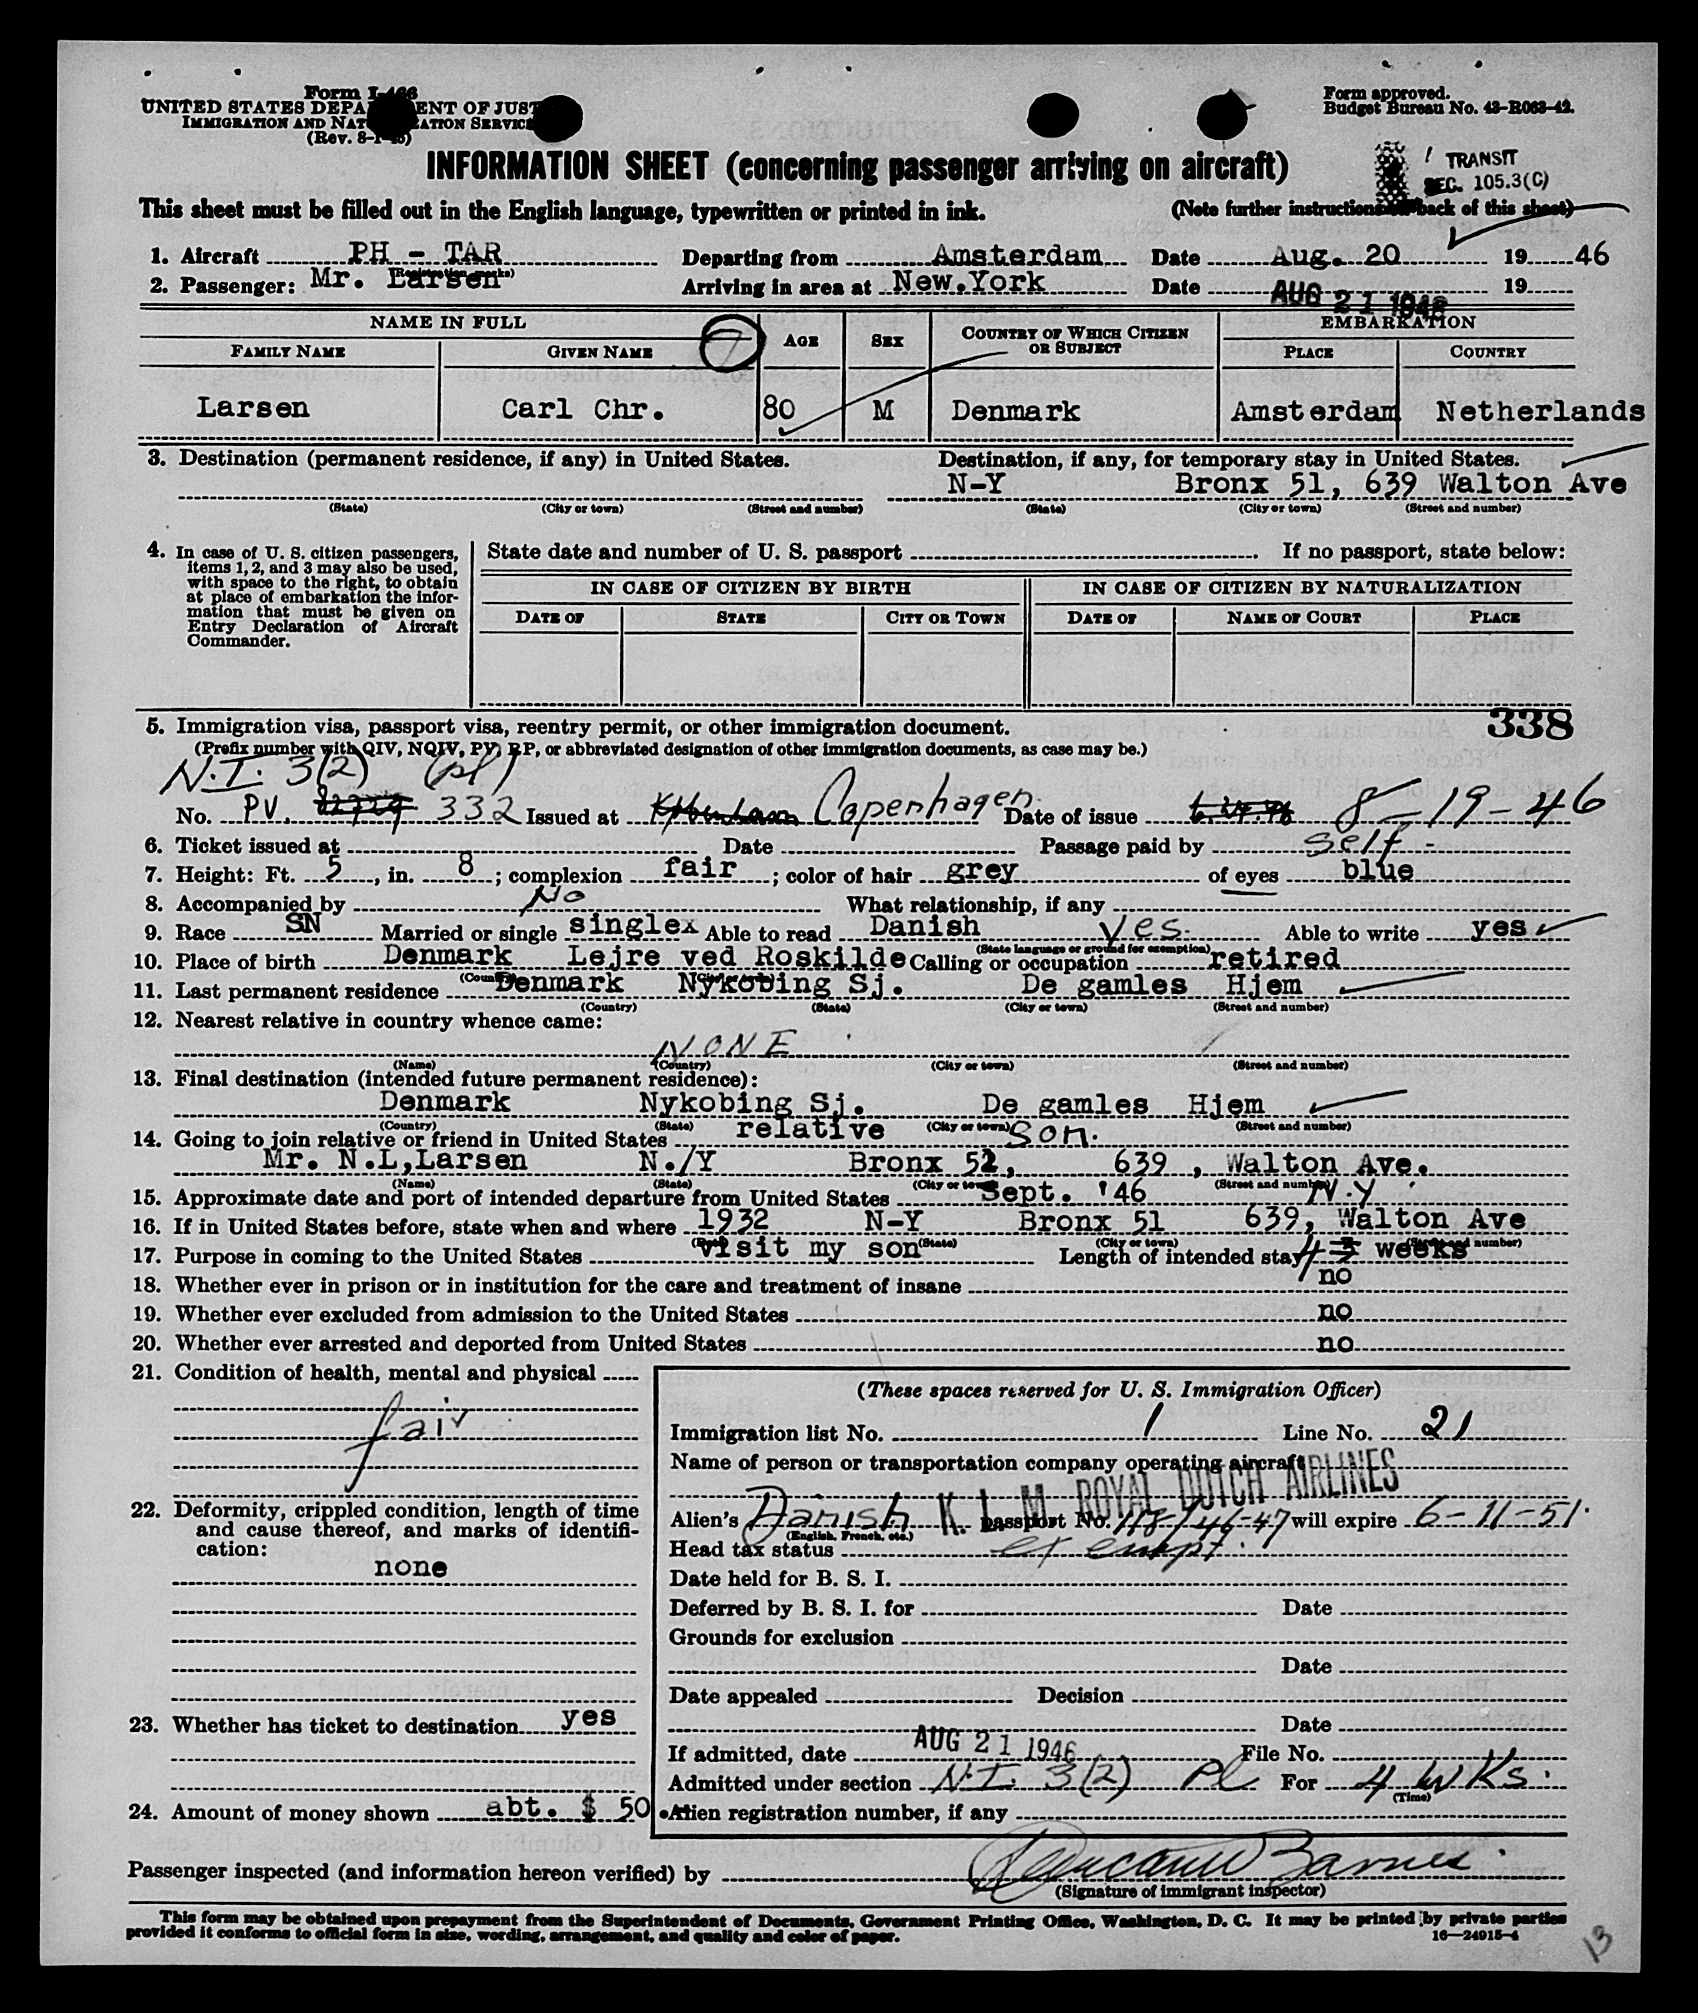 Form I-466
UNITED STATES DEPARTMENT OF JUSTICE
IMMIGRATION AND NATURALIZATION SERVICE
(Rev. 8-1-45)
Form approved.
Budget Bureau No. 43-R063-42.
INFORMATION SHEET (concerning passenger arriving on aircraft)
TRANSIT
SEC. 105.3(C)
This sheet must be filled out in the English language, typewritten or printed in ink. (Note further instructions on back of this sheet)
1. Aircraft PH - TAR Departing from Amsterdam Date Aug. 20 1946
(Registration marks)
2. Passenger: Mr. Larsen Arriving in area at New.York Date AUG 21 1946 19
NAME IN FULL 7 AGE SEX COUNTRY OF WHICH CITIZEN OR SUBJECT EMBARKATION
FAMILY NAME GIVEN NAME PLACE COUNTRY
Larsen Carl Chr. 80 M Denmark Amsterdam Netherlands
3. Destination (permanent residence, if any) in United States. Destination, if any, for temporary stay in United States.
N-Y Bronx 51, 639 Walton Ave
(State) (City or town) (Street and number) (State) (City or town) (Street and number)
4. In case of U. S. citizen passengers, items 1, 2, and 3 may also be used, with space to the right, to obtain at place of embarkation the information that must be given on Entry Declaration of Aircraft Commander.
State date and number of U. S. passport If no passport, state below:
IN CASE OF CITIZEN BY BIRTH IN CASE OF CITIZEN BY NATURALIZATION
DATE OF STATE CITY OR TOWN DATE OF NAME OF COURT PLACE
338
5. Immigration visa, passport visa, reentry permit, or other immigration document.
(Prefix number with QIV, NQIV, PV, RP, or abbreviated designation of other immigration documents, as case may be.)
N.I. 3(2) (pl)
No. PV. 332 Issued at Copenhagen Date of issue 8-19-46
6. Ticket issued at Date Passage paid by self-
7. Height: Ft. 5, in. 8; complexion fair; color of hair grey of eyes blue
8. Accompanied by No What relationship, if any
9. Race SN Married or single singlex Able to read Danish yes. Able to write yes
(State language or ground for exemption)
10. Place of birth Denmark Lejre ved Roskilde Calling or occupation retired
(Country) (City or town)
11. Last permanent residence Denmark Nykobing Sj. De gamles Hjem
(Country) (State) (City or town) (Street and number)
12. Nearest relative in country whence came:
NONE
(Name) (Country) (City or town) (Street and number)
13. Final destination (intended future permanent residence):
Denmark Nykobing Sj. De gamles Hjem
(Country) (State) (City or town) (Street and number)
14. Going to join relative or friend in United States relative Son.
Mr. N.L,Larsen N./Y Bronx 51, 639, Walton Ave.
(Name) (State) (City or town) (Street and number)
15. Approximate date and port of intended departure from United States Sept. '46 N.Y
16. If in United States before, state when and where 1932 N-Y Bronx 51 639, Walton Ave
(Date) (State) (City or town) (Street and number)
17. Purpose in coming to the United States visit my son Length of intended stay 4 3 weeks
18. Whether ever in prison or in institution for the care and treatment of insane no
19. Whether ever excluded from admission to the United States no
20. Whether ever arrested and deported from United States no
21. Condition of health, mental and physical
fair
22. Deformity, crippled condition, length of time and cause thereof, and marks of identification:
none
23. Whether has ticket to destination yes
24. Amount of money shown abt. $ 50.-
(These spaces reserved for U. S. Immigration Officer)
Immigration list No. 1 Line No. 21
Name of person or transportation company operating aircraft
K. L. M. ROYAL DUTCH AIRLINES
Alien's Danish passport No. 118/46-47 will expire 6-11-51.
(English, French, etc.)
Head tax status exempt.
Date held for B. S. I.
Deferred by B. S. I. for Date
Grounds for exclusion
Date
Date appealed Decision
Date
If admitted, date AUG 21 1946 File No.
Admitted under section N.I. 3(2) Pl For 4 wks.
(Time)
Alien registration number, if any
Passenger inspected (and information hereon verified) by Barnes
(Signature of immigrant inspector)
This form may be obtained upon prepayment from the Superintendent of Documents, Government Printing Office, Washington, D. C. It may be printed by private parties
provided it conforms to official form in size, wording, arrangement, and quality and color of paper.
16—24915-4
13